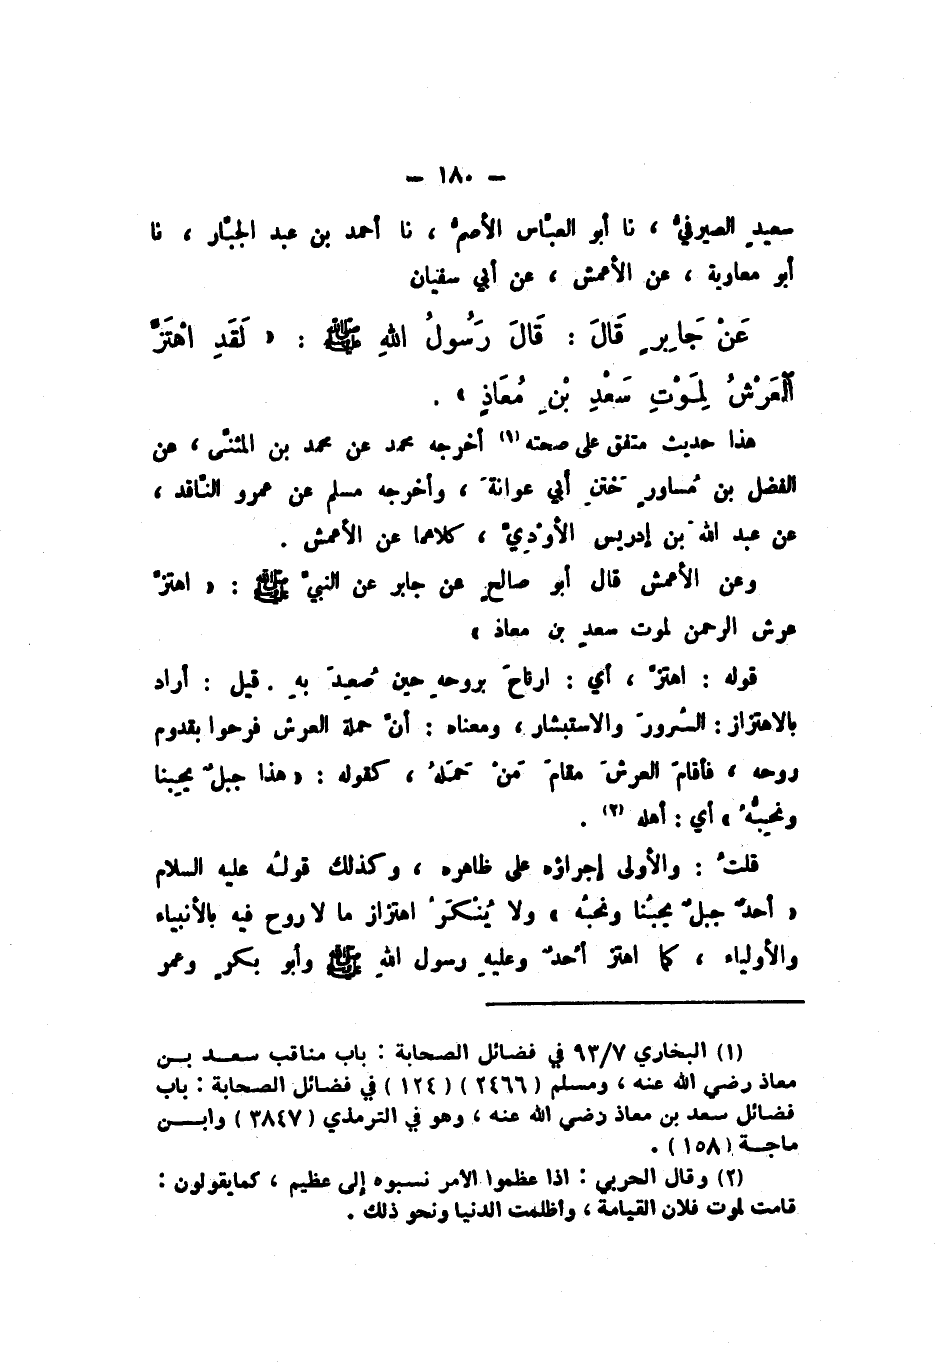 — ١٨٠ —
سعيدٍ الصيرفيُّ ، نا أبو العبّاس الأصمُّ ، نا أحمد بن عبد الجبّار ، نا
أبو معاوية ، عن الأعمش ، عن أبي سفيان
عَنْ جَابِرٍ قَالَ : قَالَ رَسُولُ اللهِ ﷺ : « لَقَدِ اهْتَزَّ
الْعَرْشُ لِمَوْتِ سَعْدِ بْنِ مُعَاذٍ » .
هذا حديث متفق على صحته (١) أخرجه محمد عن محمد بن المثنّى ، عن
الفضل بن مُساورٍ خَتَنِ أبي عوانةَ ، وأخرجه مسلم عن عمرو النّاقد ،
عن عبد الله بن إدريس الأوْديِّ ، كلاهما عن الأعمش .
وعن الأعمش قال أبو صالحٍ عن جابر عن النبيِّ ﷺ : « اهتزَّ
عرش الرحمن لموت سعدِ بن معاذ »
قوله : اهتزَّ ، أي : ارتاحَ بروحهِ حين صُعِدَ بهِ . قيل : أراد
بالاهتزاز : السُّرورَ والاستبشار ، ومعناه : أنَّ حملة العرش فرحوا بقدوم
روحه ، فأقامَ العرشَ مقامَ مَنْ حَمَلَهُ ، كقوله : « هذا جبلٌ يحبنا
ونحبُّهُ » أي : أهله (٢) .
قلتُ : والأولى إجراؤه على ظاهره ، وكذلك قولُه عليه السلام
« أحدٌ جبلٌ يحبُّنا ونحبُّه » ولا يُنْكَرُ اهتزاز ما لا روح فيه بالأنبياء
والأولياء ، كما اهتز أُحدٌ وعليهِ رسول اللهِ ﷺ وأبو بكرٍ وعمر
(١) البخاري ٩٣/٧ في فضائل الصحابة : باب مناقب سعد بن
معاذ رضي الله عنه ، ومسلم ( ٢٤٦٦ ) ( ١٢٤ ) في فضائل الصحابة : باب
فضائل سعد بن معاذ رضي الله عنه ، وهو في الترمذي ( ٣٨٤٧ ) وابن
ماجة ( ١٥٨ ) .
(٢) وقال الحربي : اذا عظموا الامر نسبوه إلى عظيم ، كما يقولون :
قامت لموت فلان القيامة ، واظلمت الدنيا ونحو ذلك .